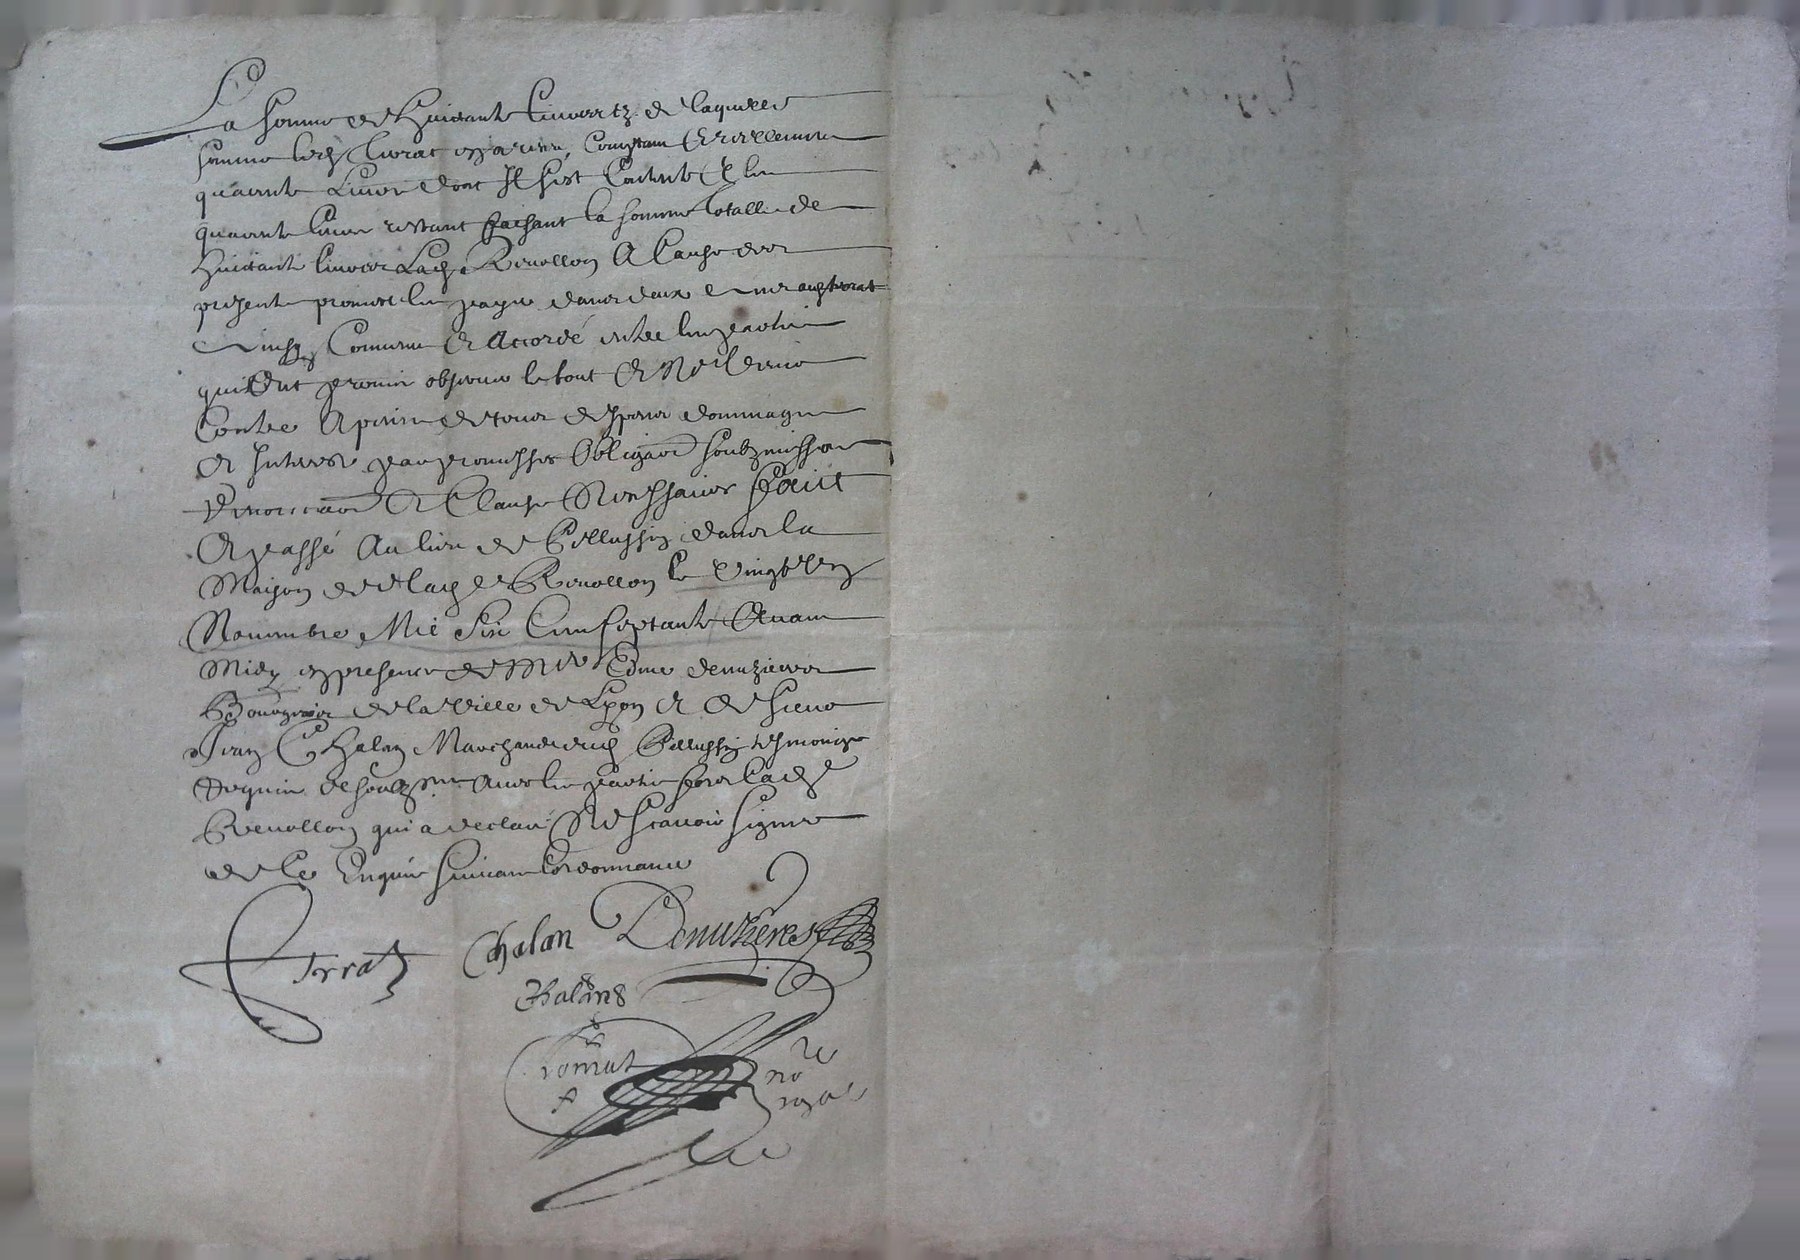 La somme de Huictante livres tz de laquelle
somme led Ferrat en a receu comptant Et reellement
quarante Livres dont Il sest Contente Et les
quarante livres restant faisant la somme totalle de
Huictante livres Lad Revollon A cause des
presente promet les payer dans deux
Ainsy Convenu Et Accordé entre les parties
qui Ont promis observer le tout Et Ny Venir
Contre A peine de tous despens dommages
Et Interest par promesses Obligaon soubzmissions
Renonciaon Et Clauses Necessaires Faict
Et passé Au lieu de Pellussin dans la
Maison de lad Revollon le vingt
Novembre Mil Six Cens septante Avant
Midy en presence de Mre Edme Denuzieres
Bourgeois de la Ville de Lyon Et de sieur
Jean Chalan Marchand dud Pellussin tesmoings
Requis Et soubzsignes Avec les parties fors lad
Revollon qui a declaré Ne scavoir signer
de Ce Enquise suivant lordonnance
Ferrat Chalan Denuzieres
no re
royal